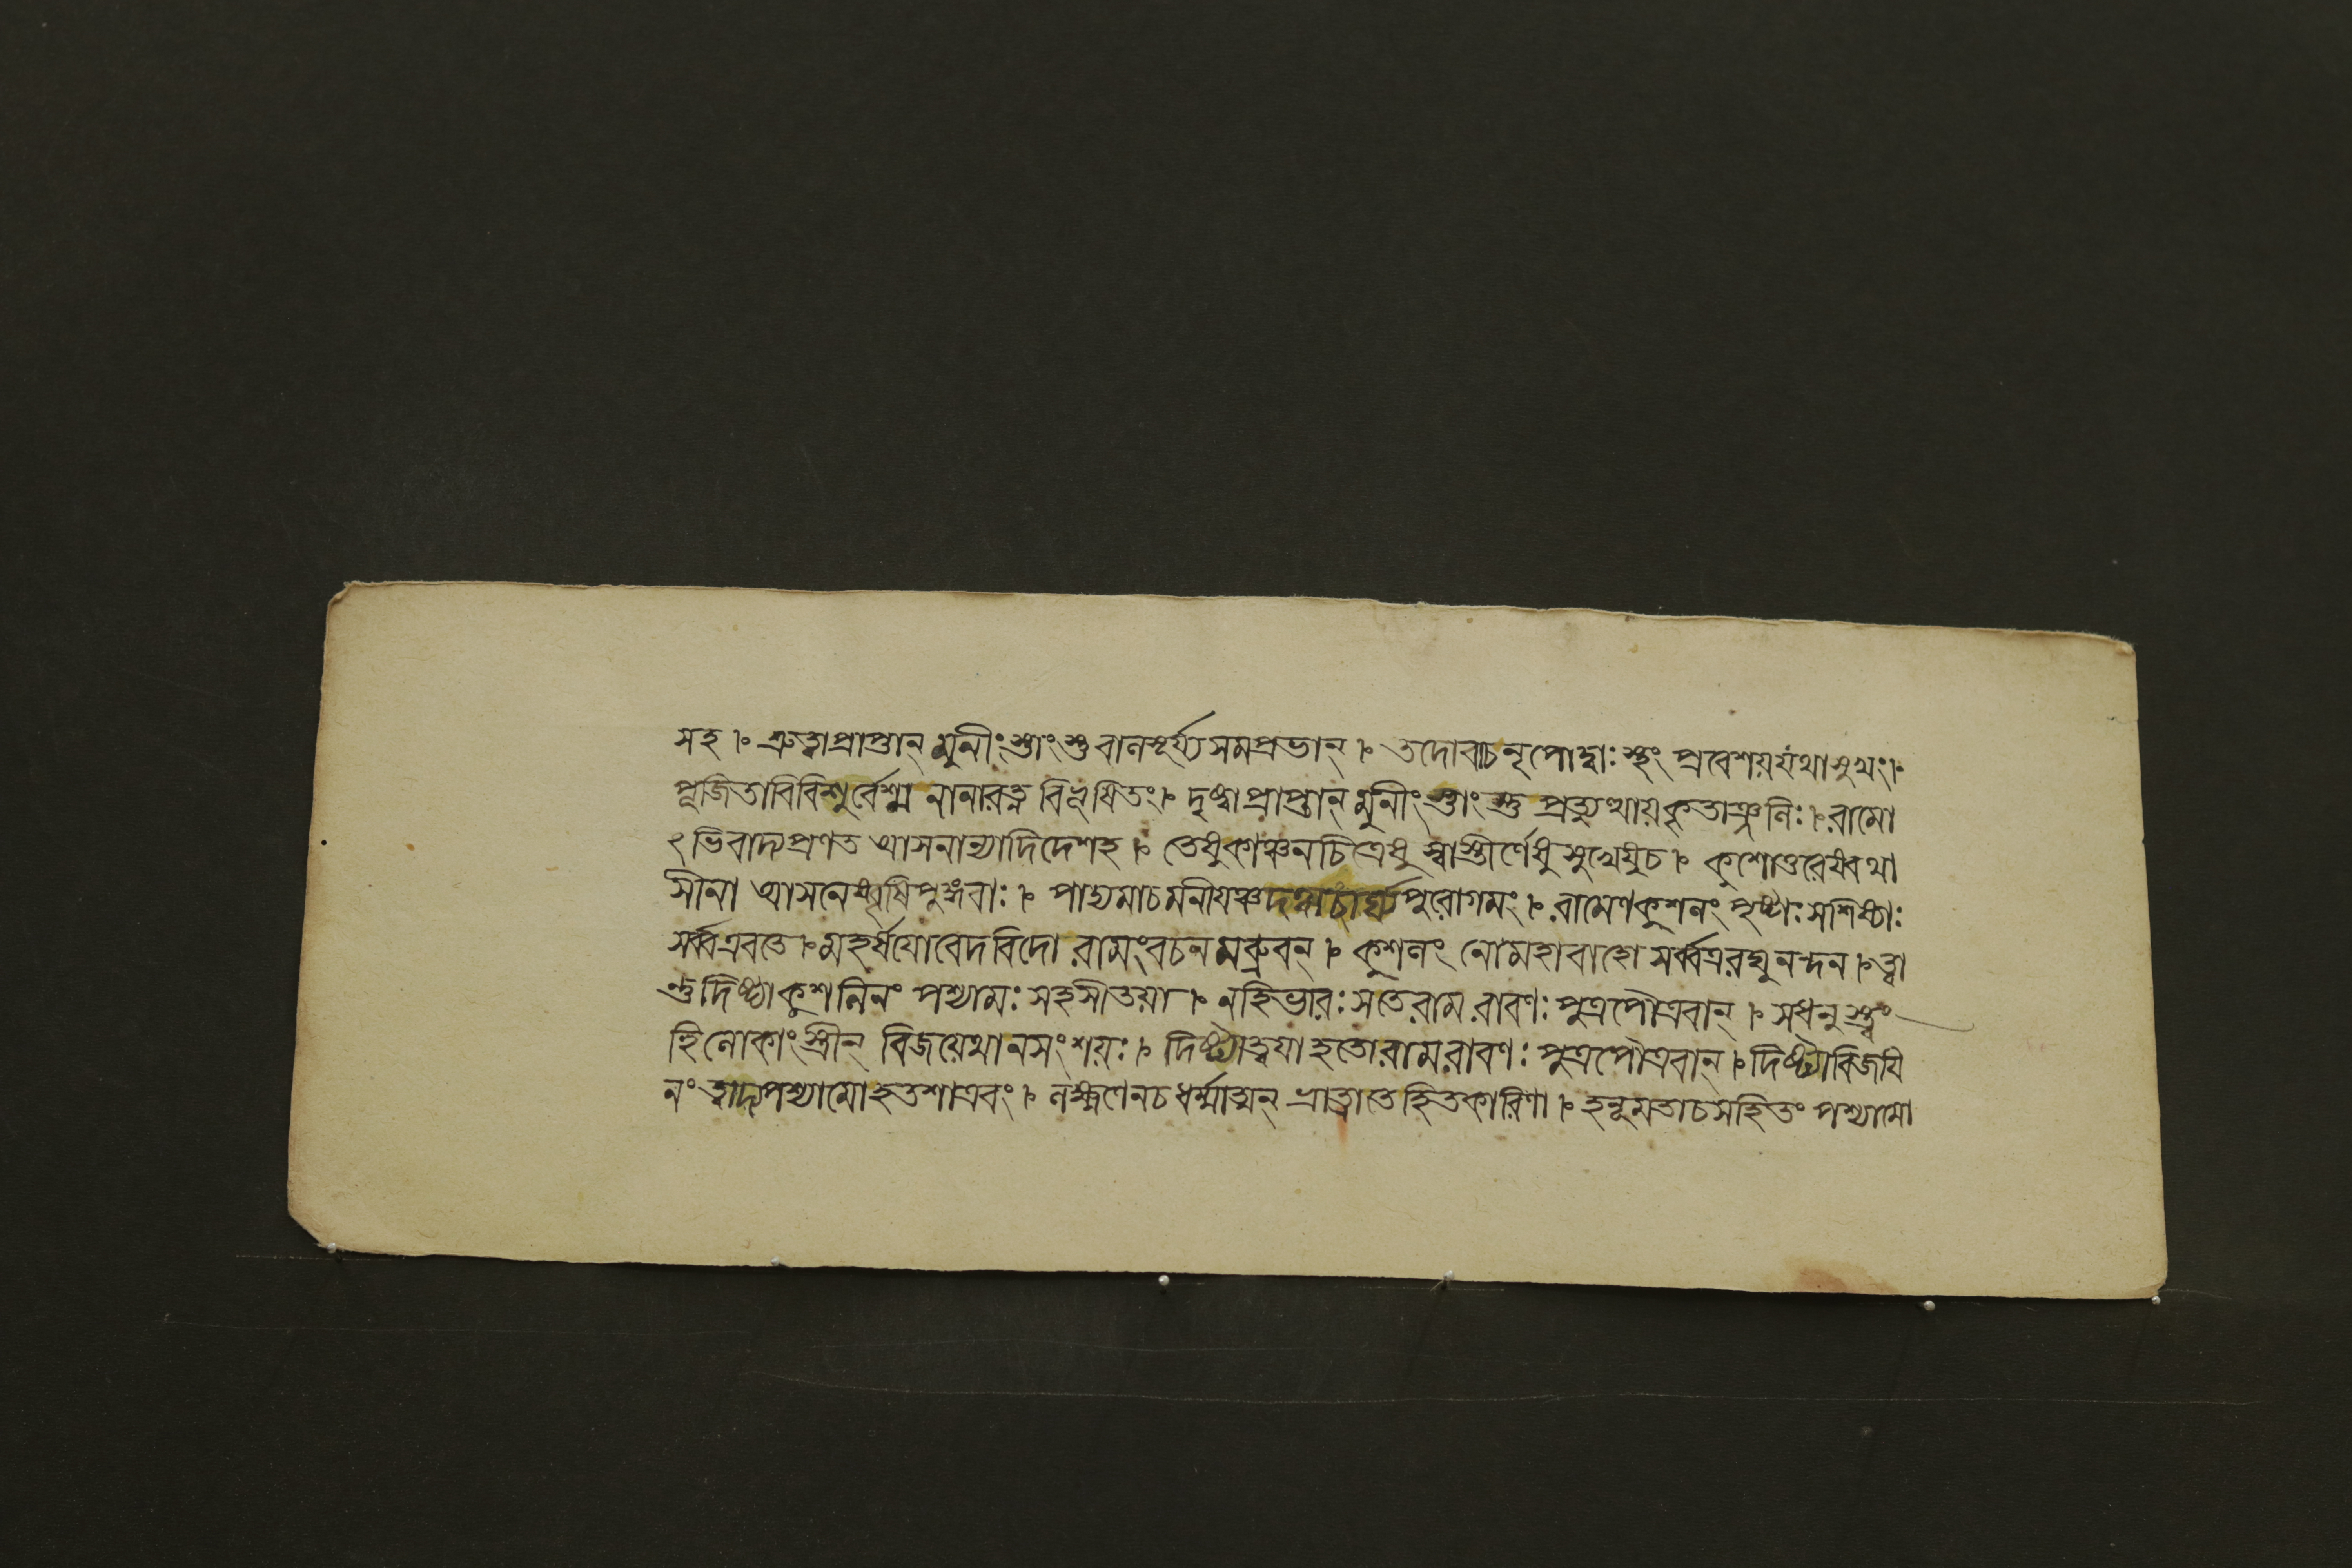 সহ ৷ শ্রুত্বাপ্রাপ্তান্ মুনীংস্তাংস্তু বানসূর্য্যসমপ্রভান্ ৷ তদোবাচনৃপোদ্বাঃস্থং প্রবেশয়যথাসুখং ৷
পূজিতাবিবিশুর্বেশ্ম নানারত্ন বিভূষিতং ৷ দৃষ্ট্বাপ্রাপ্তান্ মুনীংস্তাংস্তু প্রত্যুত্থায়কৃতাঞ্জলিঃ ৷ রামো
ঽভিবাদ্যপ্রণত আসনান্যাদিদেশহ ৷ তেষুকাঞ্চনচিত্রেষু স্বাস্তীর্ণেষুসুখেষুচ ৷ কুশোত্তরেষ্বথা
সীনা আসনেষ্বৃষিপুঙ্গবাঃ ৷ পাদ্যমাচমনীয়ঞ্চদত্ত্বাচার্ঘ্যপুরোগমং ৷ রামেণকুশলং পৃষ্টাঃসশিষ্যাঃ
সর্ব্বএবতে ৷ মহর্ষয়োবেদবিদো রামংবচনমব্রুবন্ ৷ কুশলং নোমহাবাহো সর্ব্বত্ররঘুনন্দন ৷ ত্বা
ন্তুদিষ্ট্যাকুশলিনং পশ্যামঃ সহসীতয়া ৷ নহিভারঃসতেরাম রাবণঃ পুত্রপৌত্রবান্ ৷ সধনুস্ত্বং
হিলোকাংস্ত্রীন্ বিজয়েথানসংশয়ঃ ৷ দিষ্ট্যাত্বয়াহতোরামরাবণঃ পুত্রপৌত্রবান্ ৷ দিষ্ট্যাবিজয়ি
নং ত্বাদ্যপশ্যামোহতশাত্রবং ৷ লক্ষ্মণেনচধর্ম্মাত্মন্ ভ্রাত্রাতেহিতকারিণা ৷ হনূমতাচসহিতং পশ্যামো